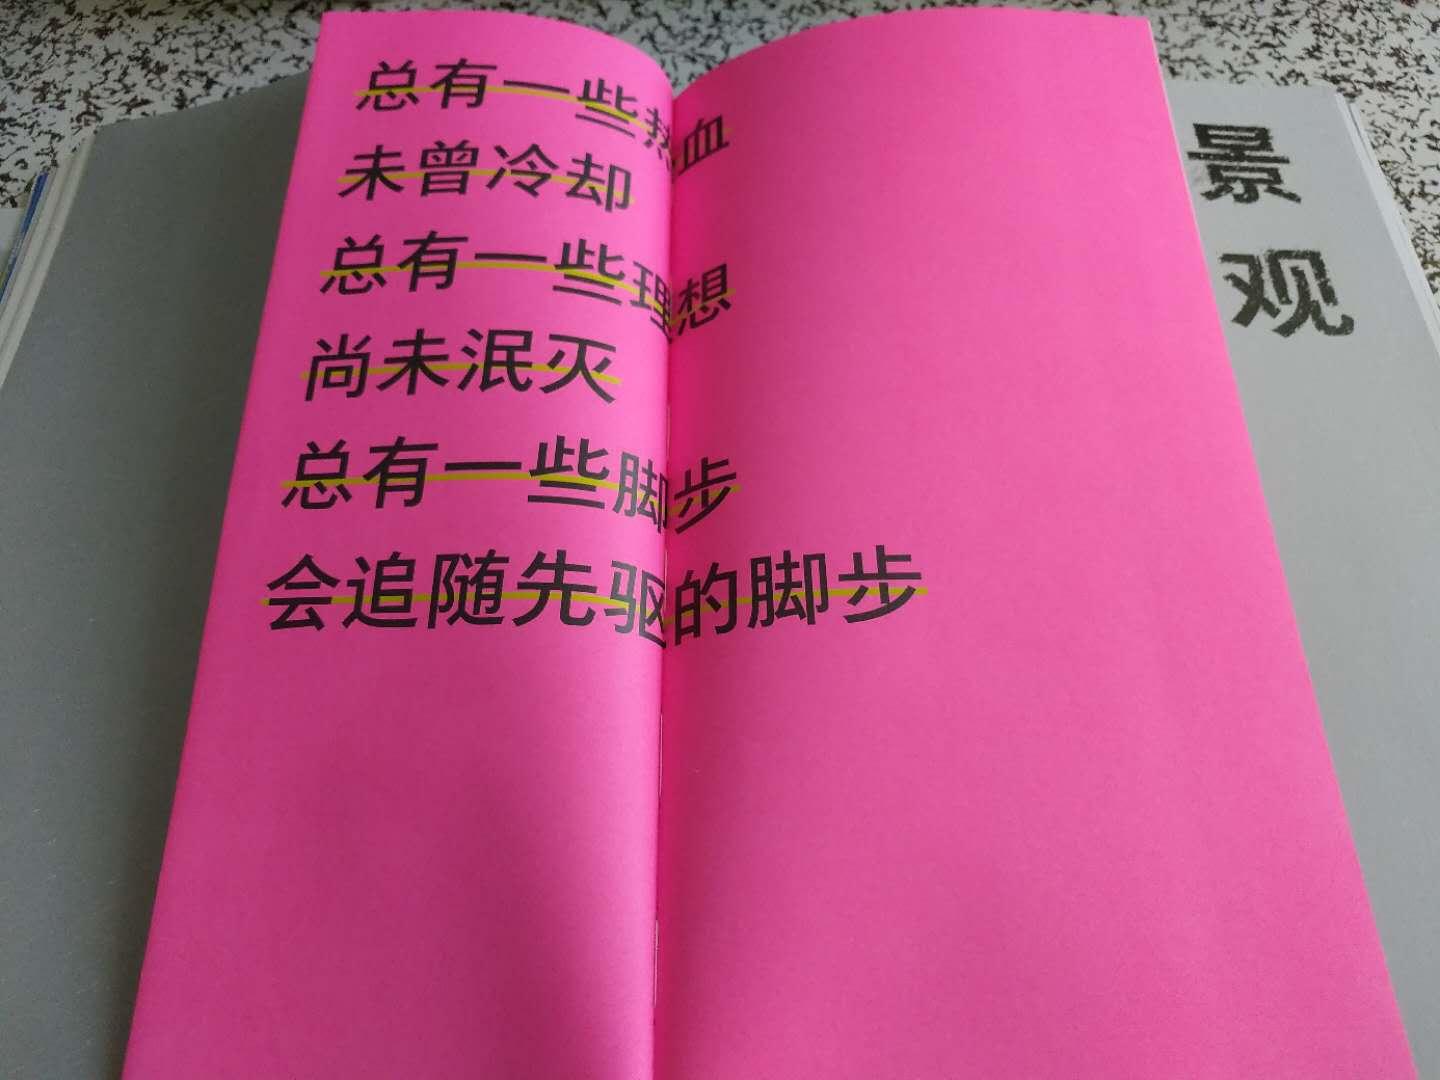 总有一些热血
未曾冷却
总有一些理想
尚未泯灭
总有一些脚步
会追随先驱的脚步
景
观